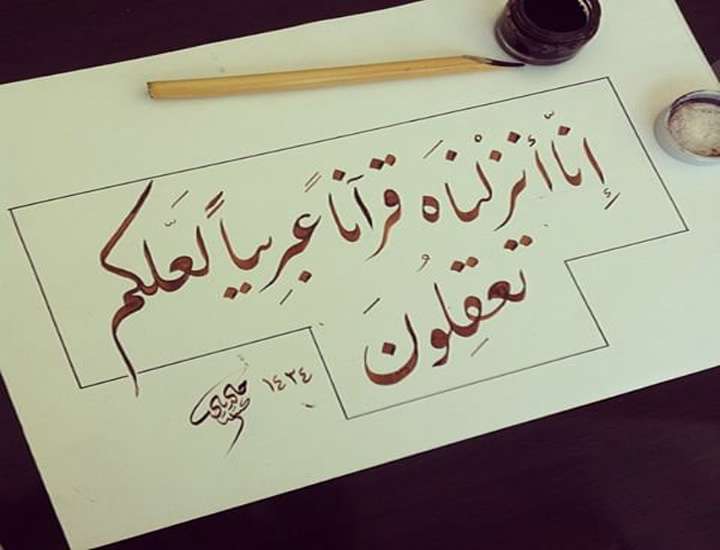 إِنّا أنزلْناَه قرآناً عَربِياً لَعَّلكم
تعقِلُونَ
١٤٣٤